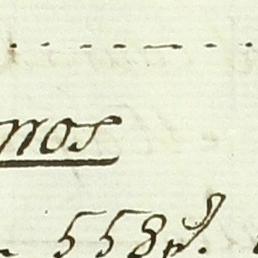 nos
558